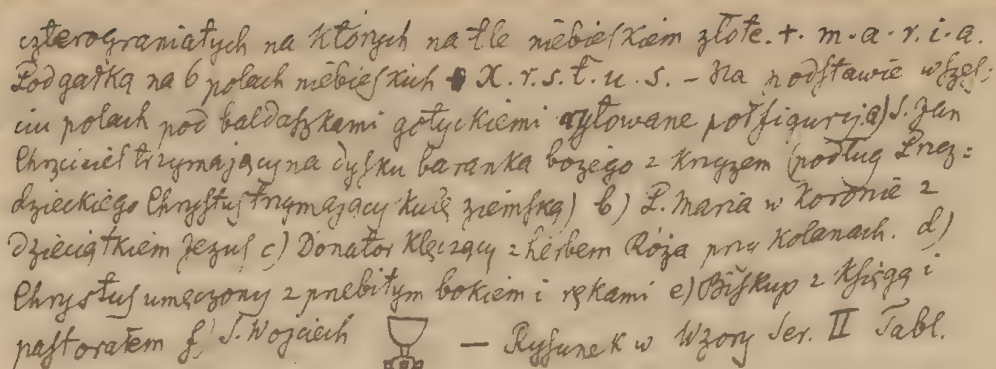 czterograniatych na których na tle niebieskiem złote. +. m. a. r. i. a.
Pod gałką na 6 polach niebieskich X. r. s. t. u. s. – Na podstawie w sześ:
ciu polach pod baldaszkami gotyckiemi rytowane półfigury ja) S. Jan
Chrzciciel trzymający na dysku baranka bożego z krzyżem (podług Przez:
dzieckiego Chrystus trzymający kulę ziemską) b) P. Maria w koronie z
Dzieciątkiem Jezus c) Donator klęczący z herbem Róża przy kolanach. d)
Chrystus umęczony z przebitym bokiem i rękami e) Biskup z księgą i
pastorałem f) S. Wojciech — Rysunek w Wzory Ser. II Tabl.